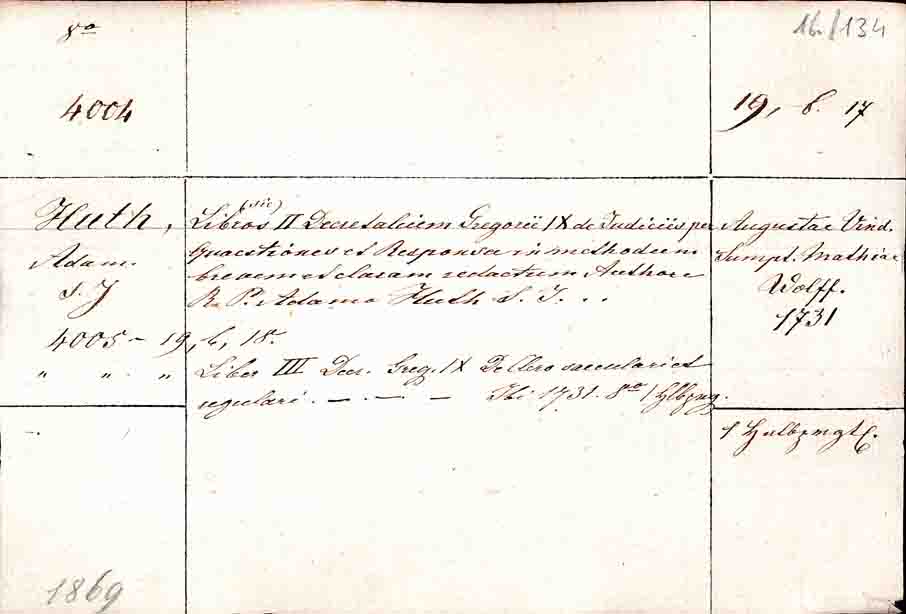 8º
16./134
4004
19, b. 17
Huth,
Adam.
S. J
(sic)
Libros II Decretalium Gregorii IX de Judiciis per
Quaestiones et Responsa in methodum
brevem et claram redactum Authore
R. P. Adamo Huth S. J. . .
Augustae Vind.
Sumpt. Mathiae
Wolff.
1731
4005 - 19, b, 18.
" " . " Liber III Decr. Greg. IX De Clero saeculari et
regulari . - . - - Ibi 1731. 8º 1 Hlbpmg.
1 Halbpmgt.
1869